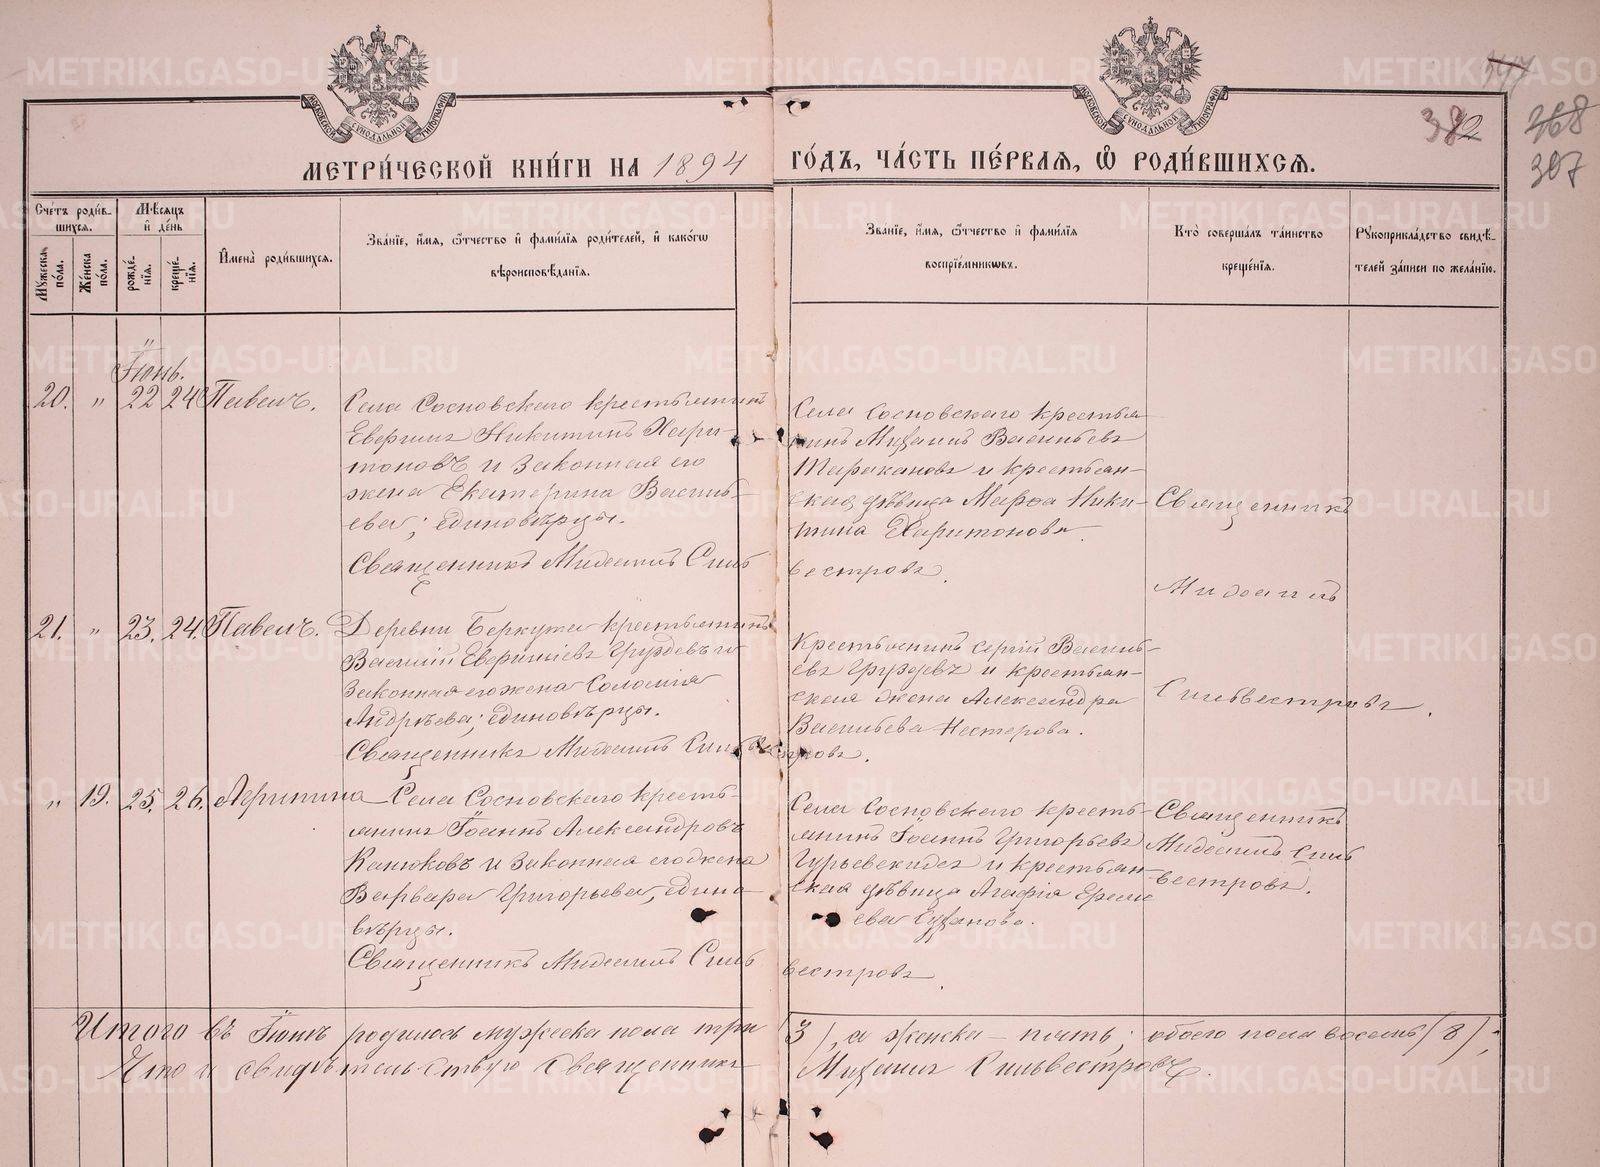 МЕТРИ́ЧЕСКОЙ КНИ́ГИ НА 1894 ГО́ДЪ, ЧА́СТЬ ПЕ́РВАЯ, Ѡ РОДИ́ВШИХСЯ.
382
268
307
Сче́тъ роди́в-
шихся.
Му́жеска
по́ла.
Же́нска
по́ла.
Мѣ́сяцъ
и де́нь
рожде́-
нїя.
креще́-
нїя.
И҆мена̀ роди́вшихся.
Зва́нїе, и҆́мя, ѻ҆́тчество и҆ фами́лїя роди́телей, и҆ како́гѡ
вѣроисповѣ́данїя.
Зва́нїе, и҆́мя, ѻ҆́тчество и҆ фами́лїя
воспрїе́мникѡвъ.
Кто̀ соверша́лъ та́инство
креще́нїя.
Рукоприкла́дство свидѣ́-
телей за́писи по жела́нїю.
Іюнь.
20. " 22 24 Павелъ.
Села Сосновскаго крестьянинъ
Евгений Никитинъ Хари-
тоновъ и законная его
жена Екатерина Василь-
ева; единовѣрцы.
Священникъ Михаилъ Силь
вестровъ.
Села Сосновскаго крестья
нинъ Михаилъ Васильевъ
Тараканов и крестьян-
ская дѣвица Марѳа Ники-
тина Харитонова.
Священникъ
Михаилъ
Сильвестровъ.
21. " 23. 24. Павелъ.
Деревни Беркута крестьянинъ
Василий Груздевъ и
законная его жена Соломия
Андреева; единовѣрцы.
Священникъ Михаилъ Сильвестровъ.
Крестьянинъ Сергій Василь-
евъ Груздевъ и крестьян-
ская жена Александра
Васильева Нестерова.
" 19. 25. 26. Агрипина
Села Сосновскаго кресть-
янинъ Іоаннъ Александровъ
Канюковъ и законная его жена
Варвара Григорьева, едино
вѣрцы.
Священникъ Михаилъ Силь
вестровъ.
Села Сосновскаго кресть-
янинъ Іоаннъ Григорьевъ
и крестьян-
ская дѣвица Агафія
Суханова.
Священникъ
Михаилъ Силь
вестровъ.
Итого въ Іюнѣ родилось мужеска пола три 3), а женска – пять; обоего пола восемь (8);
Что и свидѣтельствую Священникъ Михаилъ Сильвестровъ.
METRIKI.GASO-URAL.RU